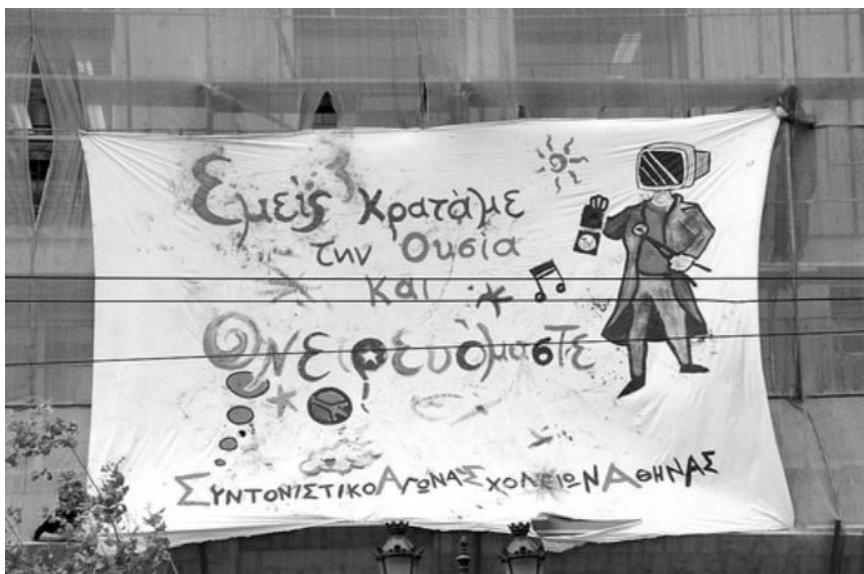 Εμείς Κρατάμε
την Ουσία
και
ΟΝΕιρΕυόμαστΕ
ΣΥΝΤΟΝΙΣΤΙΚΟ ΑΓΩΝΑ ΣΧΟΛΕΙΩΝ ΑΘΗΝΑΣ